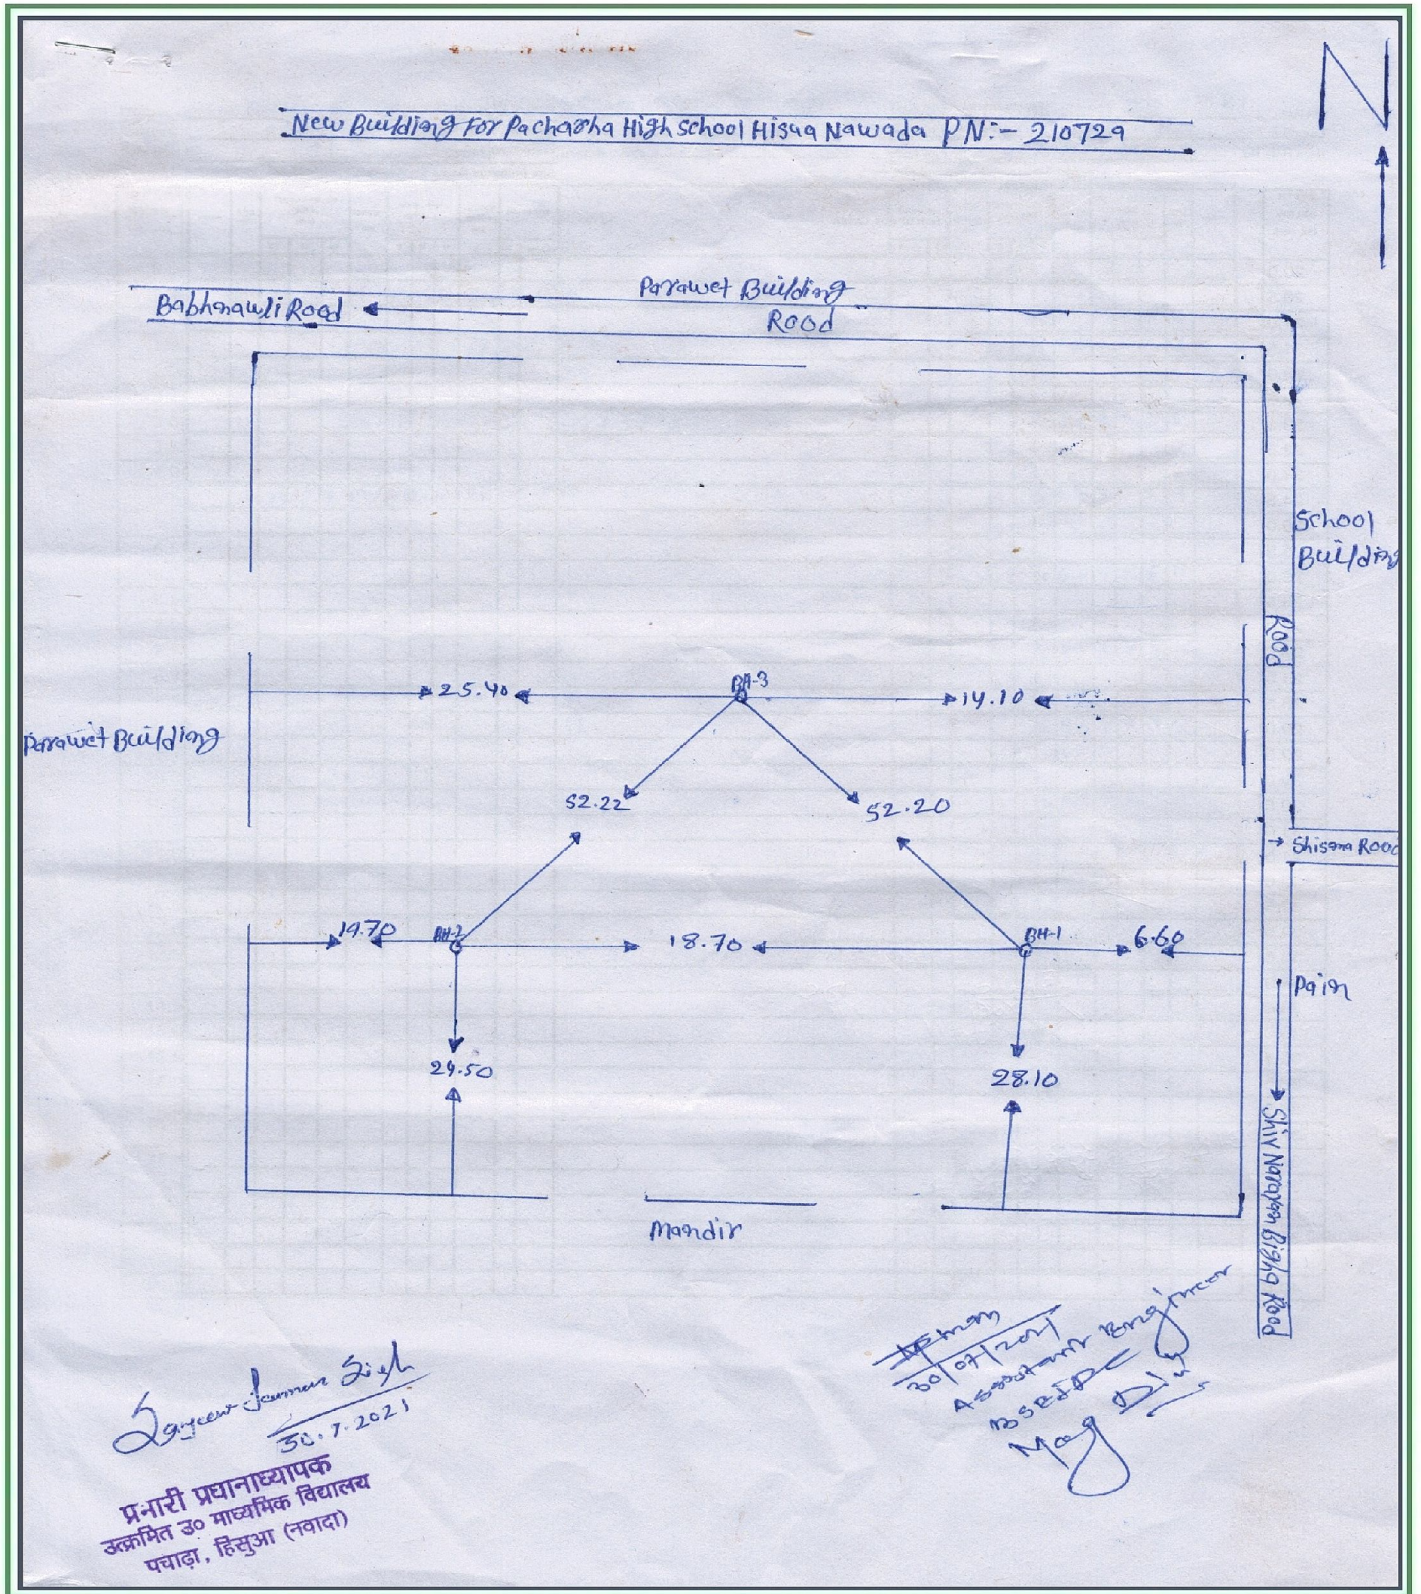 New Building For Pacharha High School Hisua Nawada PN:- 210729
N
Parawet Building
Babhnawli Rood
Rood
School
Building
Rood
BH-3
25.40
14.10
Parawet Building
52.22
52.20
Shisama Rood
19.70
BH-2
18.70
BH-1
6.60
Pain
24.50
28.10
Shiv Narayan Bigha Rood
Mandir
30/07/2021
Assistant Engineer
BSEIDC
Sanjeev Kumar Singh
30.7.2021
प्रभारी प्रधानाध्यापक
उत्क्रमित उ० माध्यमिक विद्यालय
पचाढ़ा, हिसुआ (नवादा)